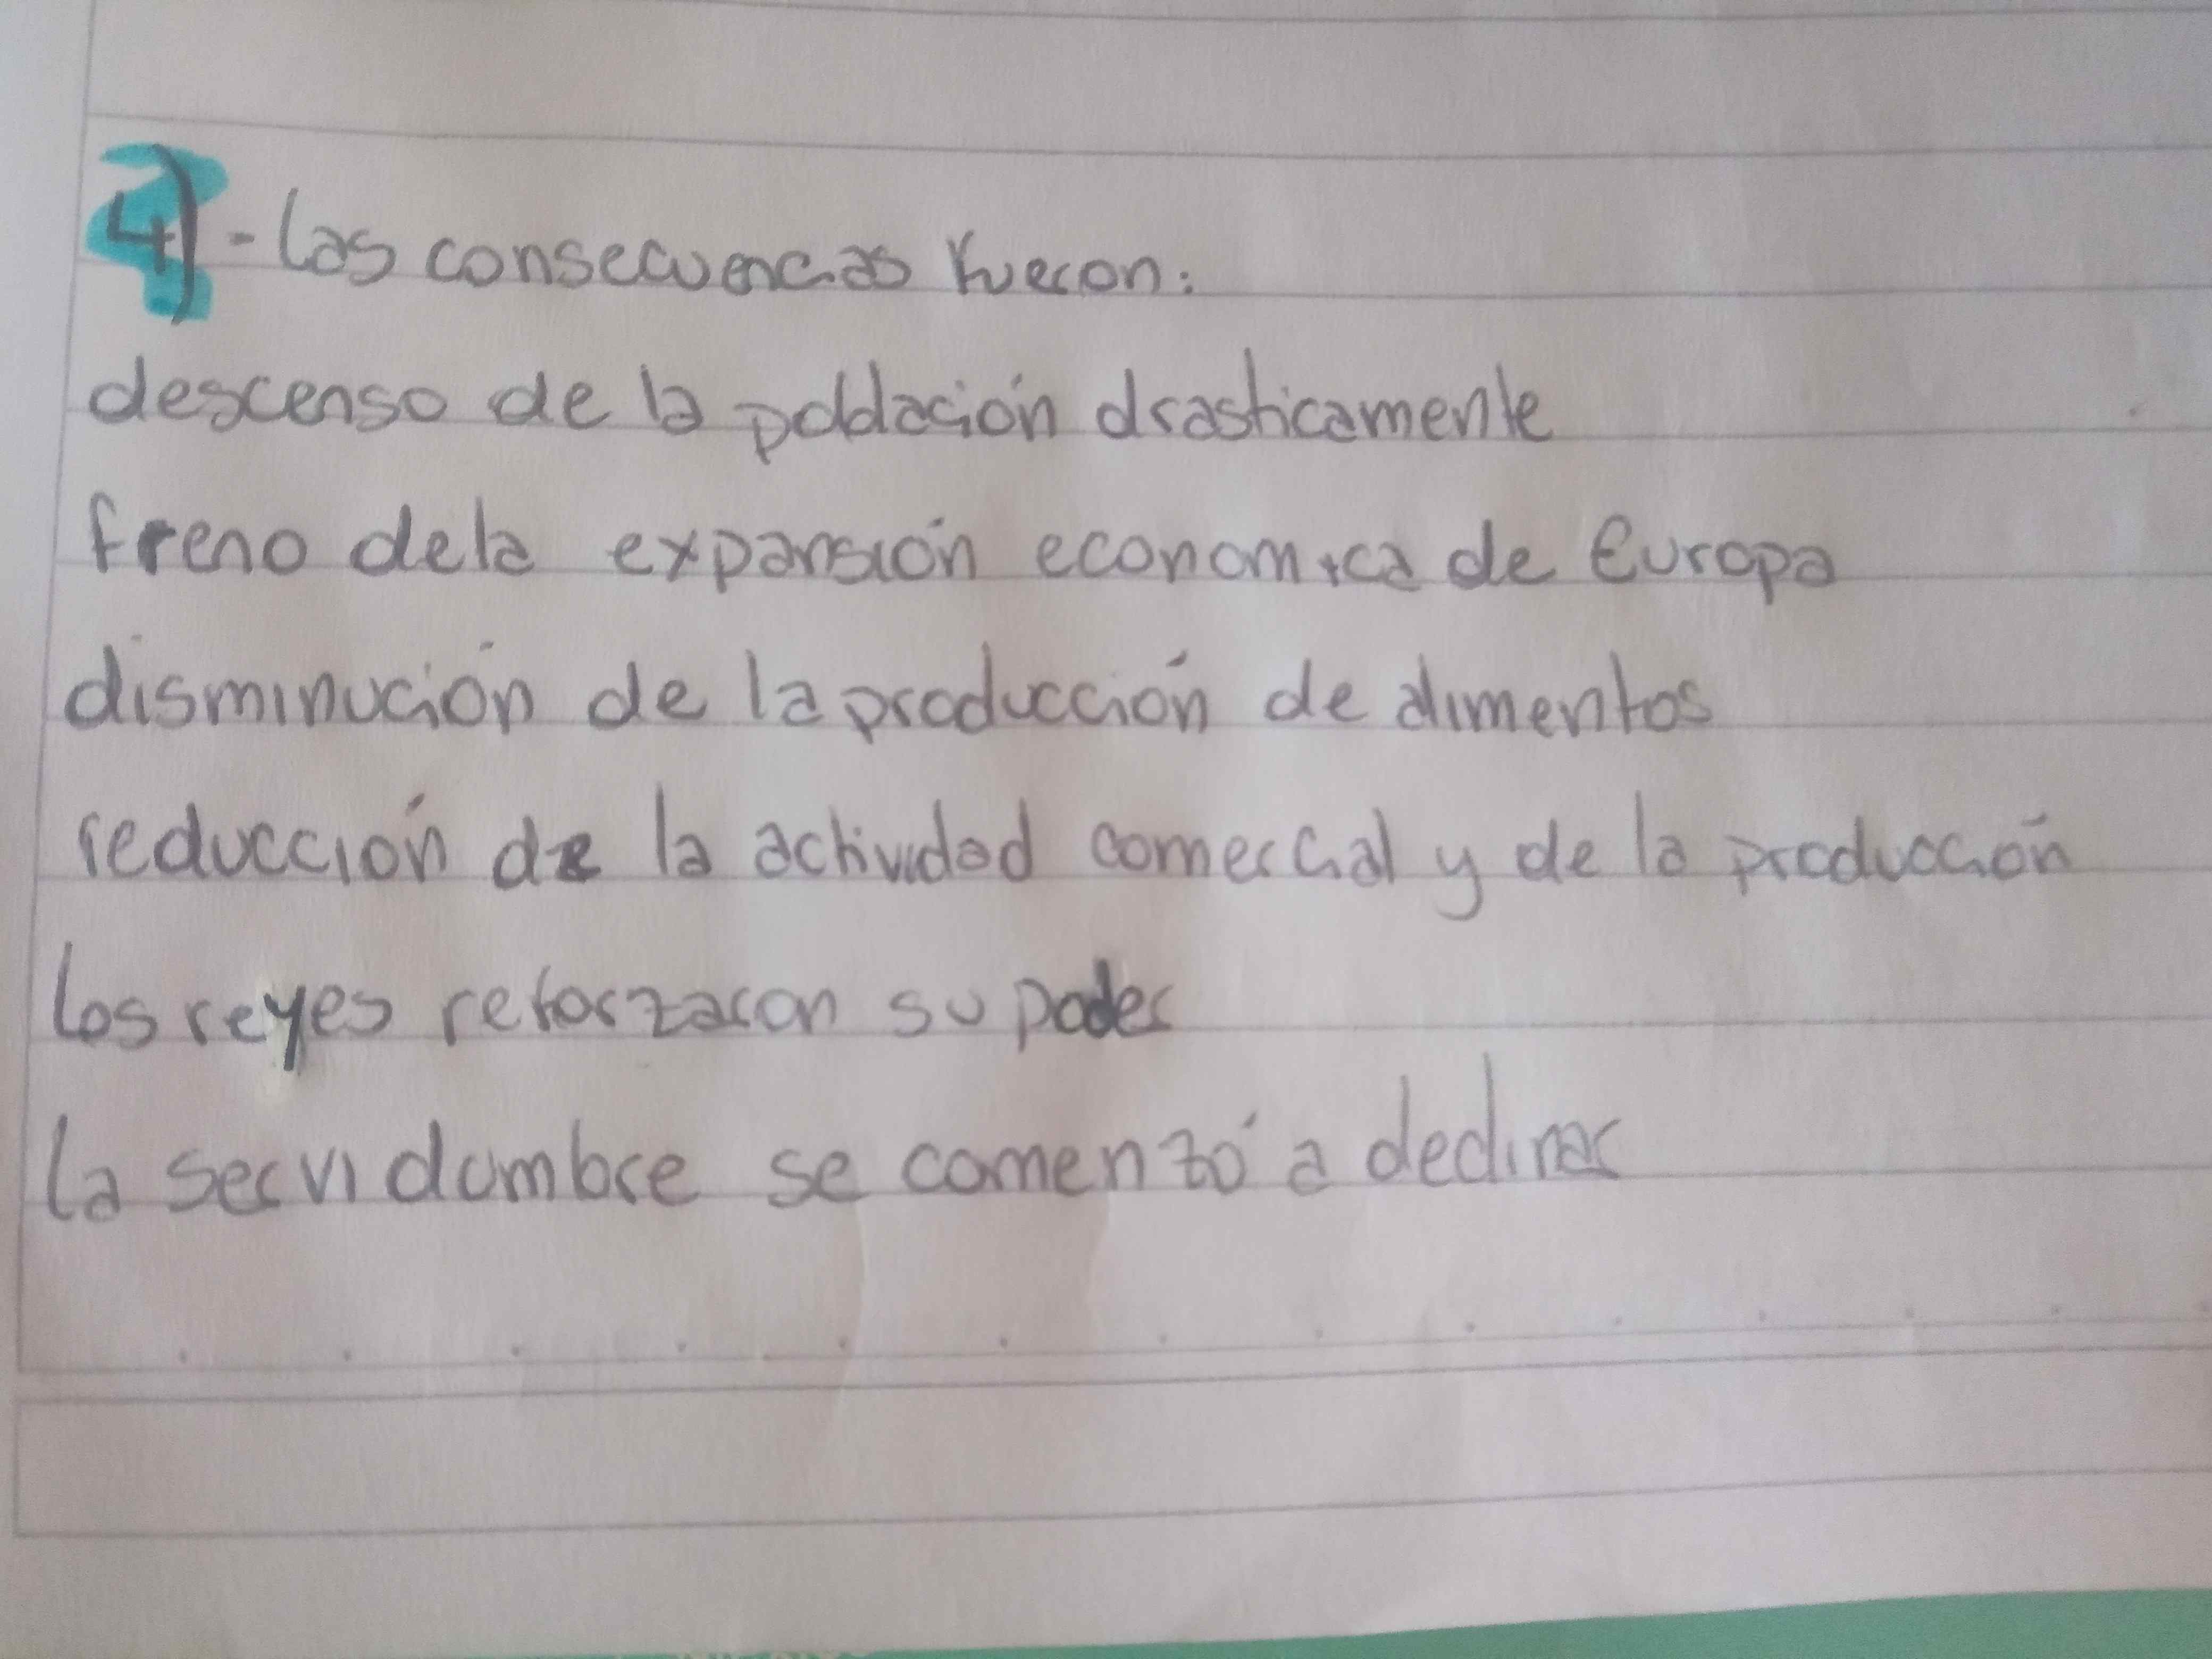 4)- Las consecuencias fueron:
descenso de la población drasticamente
freno dela expansión economica de Europa
disminución de la producción de alimentos
reducción de la actividad comercial y de la producción
Los reyes reforzaron su poder
La servidumbre se comenzó a declinar